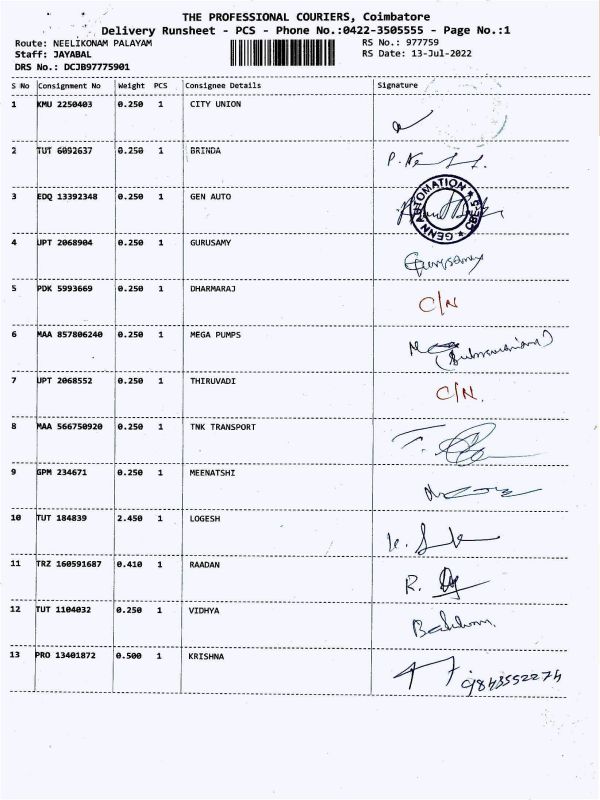 THE PROFESSIONAL COURIERS, Coimbatore
Delivery Runsheet - PCS - Phone No.:0422-3505555 - Page No.:1
Route: NEELIKONAM PALAYAM RS No.: 977759
Staff: JAYABAL RS Date: 13-Jul-2022
DRS No.: DCJB97775901
S No Consignment No Weight PCS Consignee Details Signature
1 KMU 2250403 0.250 1 CITY UNION
2 TUT 6092637 0.250 1 BRINDA P.
3 EDQ 13392348 0.250 1 GEN AUTO
GENN AUTOMATION * CBE-5 *
4 UPT 2068904 0.250 1 GURUSAMY Gurusamy
5 PDK 5993669 0.250 1 DHARMARAJ C/N
6 MAA 857806240 0.250 1 MEGA PUMPS (Subramaniam)
7 UPT 2068552 0.250 1 THIRUVADI C/N.
8 MAA 566750920 0.250 1 TNK TRANSPORT T.
9 GPM 234671 0.250 1 MEENATSHI
10 TUT 184839 2.450 1 LOGESH
11 TRZ 160591687 0.410 1 RAADAN R.
12 TUT 1104032 0.250 1 VIDHYA
13 PRO 13401872 0.500 1 KRISHNA 9843552274